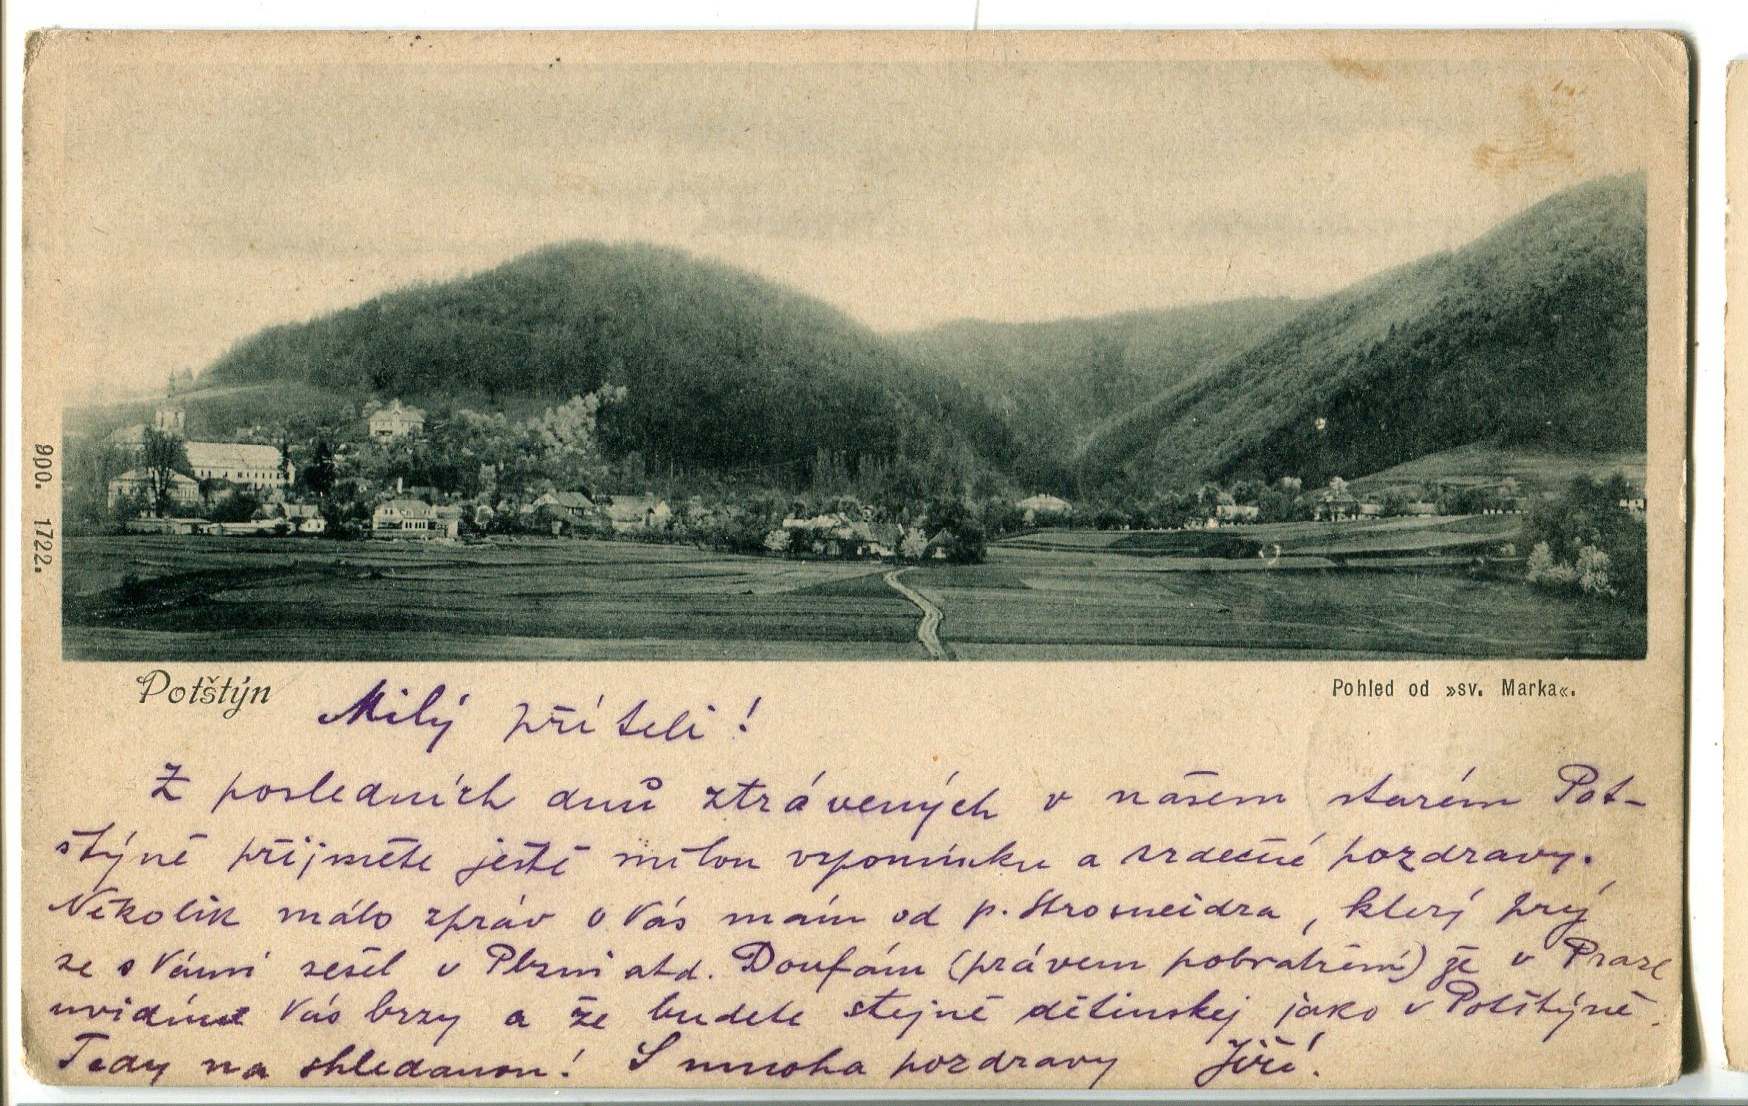 900. 1722.
Potštýn
Pohled od »sv. Marka«.
Milý příteli!
Z posledních dnů ztrávených v našem starém Pot-
štýně přijměte ještě milou vzpomínku a srdečné pozdravy.
Několik málo zpráv o Vás mám od p. Strosneidra, který prý
se s Vámi sešel v Plzni atd. Doufám (právem pobratrém) že v Praze
uvidíme Vás brzy a že budete stejně dětinskej jako v Potštýně.
Tedy na shledanou! S mnoha pozdravy Jiří.